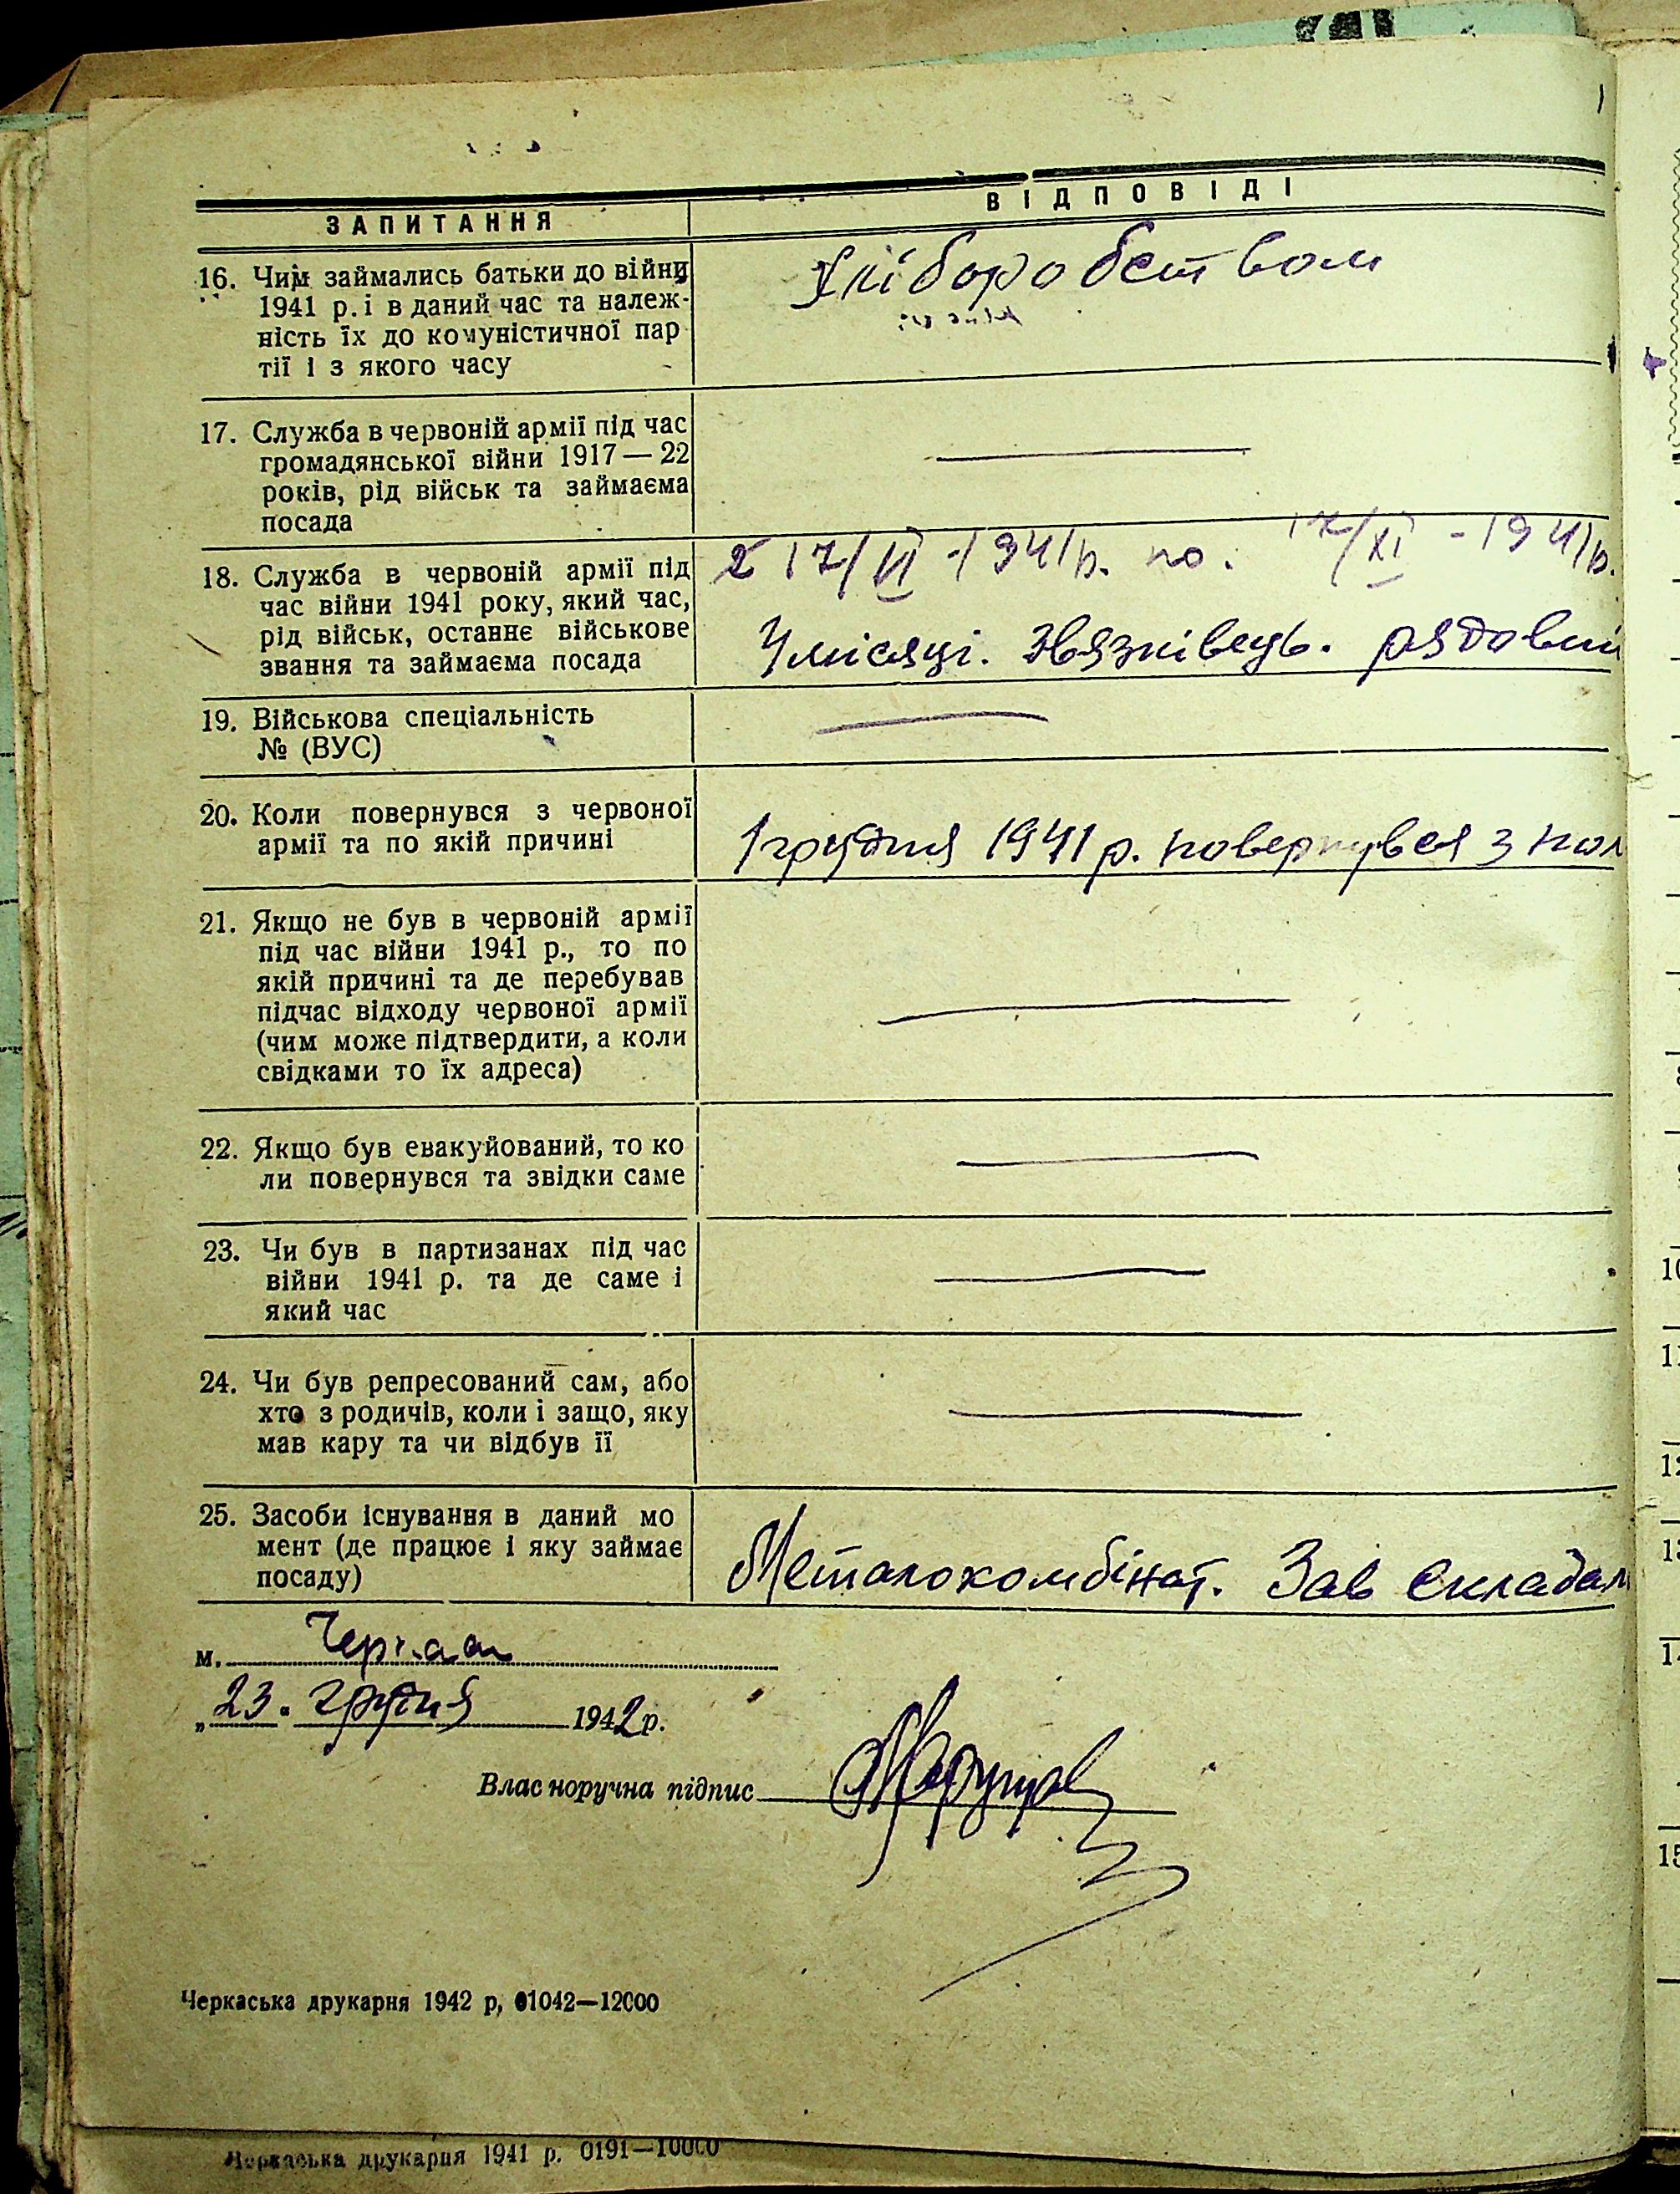 ЗАПИТАННЯ ВІДПОВІДІ
16. Чим займались батьки до війни
1941 р. і в даний час та належ-
ність їх до комуністичної пар
тії і з якого часу
Хліборобством
17. Служба в червоній армії під час
громадянської війни 1917 — 22
років, рід військ та займаєма
посада
18. Служба в червоній армії під
час війни 1941 року, який час,
рід військ, останнє військове
звання та займаєма посада
з 17/VI -1941р. по. 17/XI -1941р.
4 місяці. Звязківець. рядовий
19. Військова спеціальність
№ (ВУС)
20. Коли повернувся з червоної
армії та по якій причині
1 грудня 1941 р. повернувся з пол
21. Якщо не був в червоній армії
під час війни 1941 р., то по
якій причині та де перебував
підчас відходу червоної армії
(чим може підтвердити, а коли
свідками то їх адреса)
22. Якщо був евакуйований, то ко
ли повернувся та звідки саме
23. Чи був в партизанах під час
війни 1941 р. та де саме і
який час
24. Чи був репресований сам, або
хто з родичів, коли і защо, яку
мав кару та чи відбув її
25. Засоби існування в даний мо
мент (де працює і яку займає
посаду)
Металокомбінат. Зав складом
м. Черкаси
„23" грудня 1942 р.
Власноручна підпис
Черкаська друкарня 1942 р, 01042—12000
Черкаська друкарня 1941 р. 0191—10000
10
11
12
13
14
15